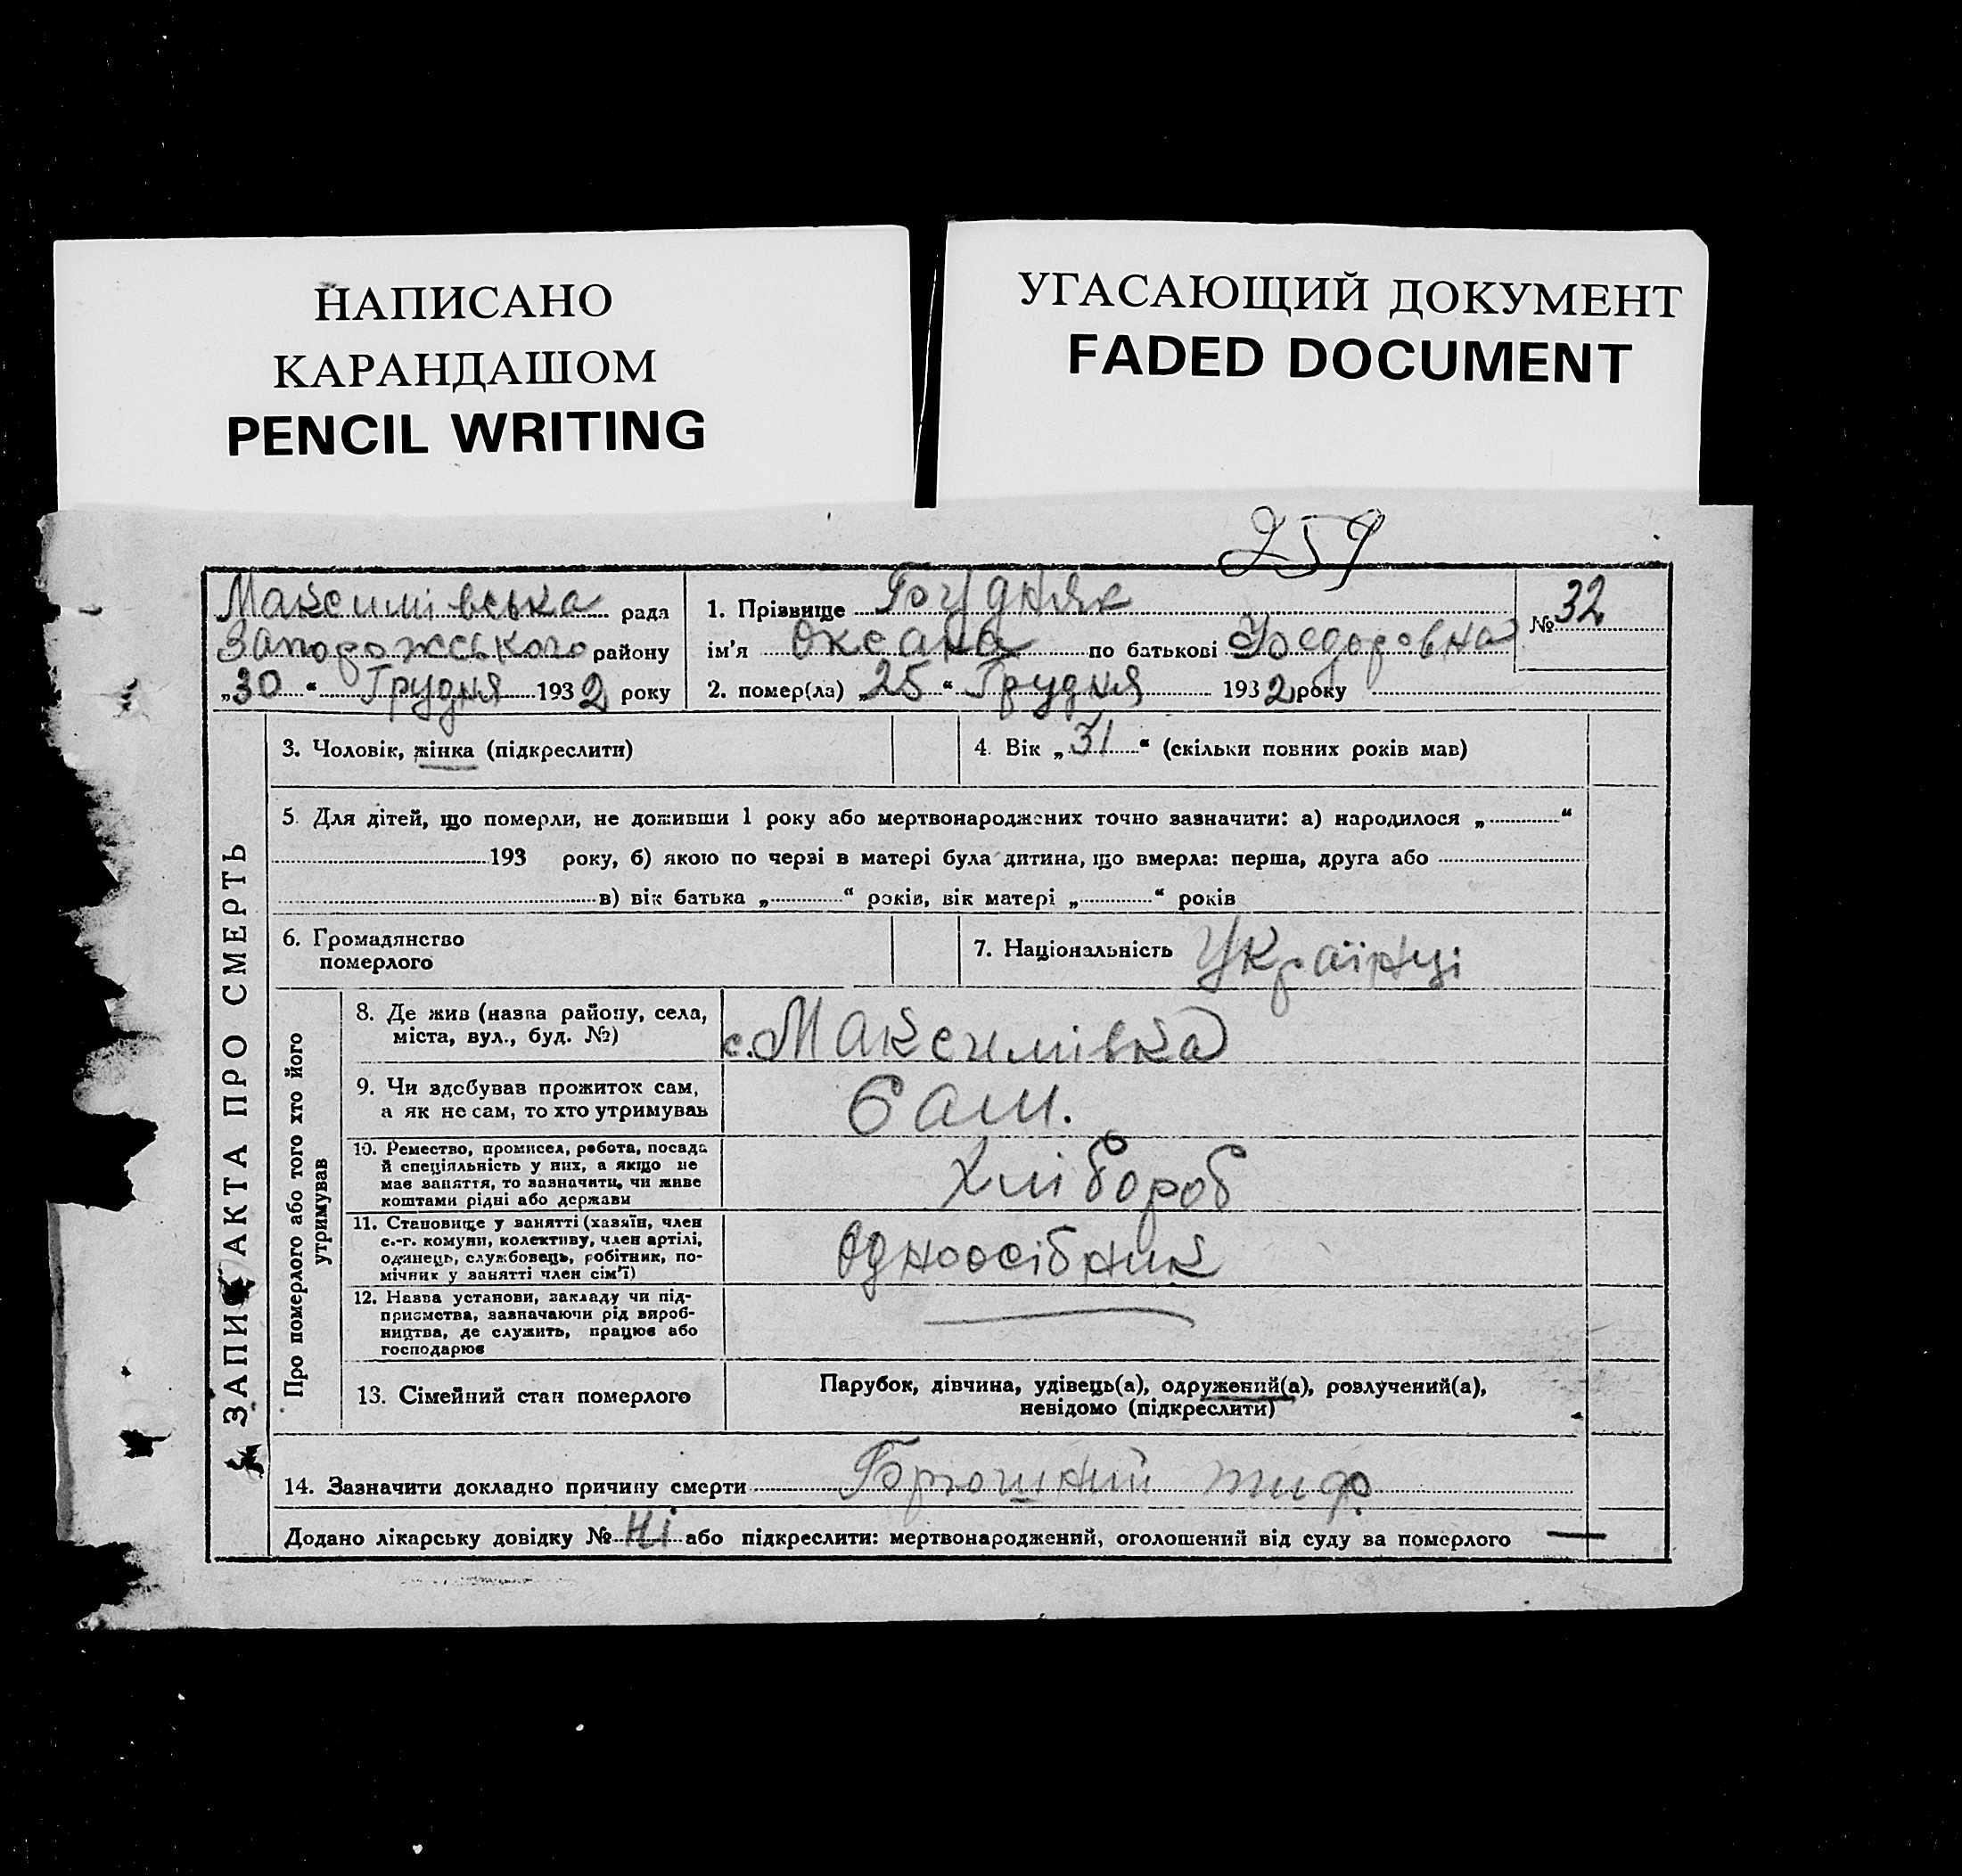 НАПИСАНО
КАРАНДАШОМ
PENCIL WRITING
УГАСАЮЩИЙ ДОКУМЕНТ
FADED DOCUMENT
259
Максимівська рада
Запорожського району
„30“ Грудня 1932 року
1. Прізвище Брудняк
ім'я Оксана по батькові Федоровна
2. помер(ла) „25“ Грудня 1932 року
№ 32
ЗАПИС АКТА ПРО СМЕРТЬ
3. Чоловік, жінка (підкреслити)
4. Вік „31“ (скільки повних років мав)
5. Для дітей, що померли, не доживши 1 року або мертвонароджених точно зазначити: а) народилося „ “
193 року, б) якою по черзі в матері була дитина, що вмерла: перша, друга або
в) вік батька „ “ років, вік матері „ “ років
6. Громадянство
померлого
7. Національність Українці
Про померлого або того хто його
утримував
8. Де жив (назва району, села,
міста, вул., буд. №)
с. Максимівка
9. Чи здобував прожиток сам,
а як не сам, то хто утримував
Сам.
10. Ремество, промисел, робота, посада
й спеціяльність у них, а якщо не
має заняття, то зазначити, чи живе
коштами рідні або держави
Хлібороб
11. Становище у занятті (хазяїн, член
с.-г. комуни, колективу, член артілі,
одинець, службовець, робітник, по-
мічник у занятті член сім'ї)
Одноосібник
12. Назва установи, закладу чи під-
приємства, зазначаючи рід вироб-
ництва, де служить, працює або
господарює
13. Сімейний стан померлого
Парубок, дівчина, удівець(а), одружений(а), розлучений(а),
невідомо (підкреслити)
14. Зазначити докладно причину смерти Брюшний тиф.
Додано лікарську довідку № Ні або підкреслити: мертвонароджений, оголошений від суду за померлого